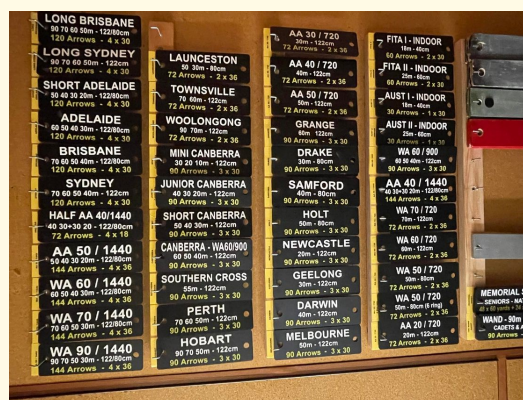 LONG BRISBANE
90 70 60 50m - 122/80cm
120 Arrows - 4 x 30
LONG SYDNEY
120 Arrows - 4 x 30
SHORT ADELAIDE
50 40 30 20m - 122/80cm
120 Arrows - 4 x 30
ADELAIDE
60 50 40 30m - 122/80cm
120 Arrows - 4 x 30
BRISBANE
70 60 50 40m - 122/80cm
120 Arrows - 4 x 30
SYDNEY
70 60 50 40m - 122cm
120 Arrows - 4 x 30
HALF AA 40/1440
40 30+30 20 - 122/80cm
72 Arrows - 4 x 18
AA 50 / 1440
50 40 30 20m - 122/80cm
144 Arrows - 4 x 36
WA 60 / 1440
60 50 40 30m - 122/80cm
144 Arrows - 4 x 36
WA 70 / 1440
70 60 50 30m - 122/80cm
144 Arrows - 4 x 36
WA 90 / 1440
90 70 50 30m - 122/80cm
144 Arrows - 4 x 36
LAUNCESTON
50 30m - 80cm
72 Arrows - 2 x 36
TOWNSVILLE
70 60m - 122cm
72 Arrows - 2 x 36
WOOLONGONG
90 70m - 122cm
72 Arrows - 2 x 36
MINI CANBERRA
30 20 10m - 122cm
90 Arrows - 3 x 30
JUNIOR CANBERRA
40 30 20m - 122cm
90 Arrows - 3 x 30
SHORT CANBERRA
50 40 30m - 122cm
90 Arrows - 3 x 30
CANBERRA - WA60/900
60 50 40m - 122cm
90 Arrows - 3 x 30
SOUTHERN CROSS
55m - 122cm
90 Arrows - 3 x 30
PERTH
70 60 50m - 122cm
90 Arrows - 3 x 30
HOBART
90 70 50m - 122cm
90 Arrows - 3 x 30
AA 30 / 720
30m - 122cm
72 Arrows - 2 x 36
AA 40 / 720
40m - 122cm
72 Arrows - 2 x 36
AA 50 / 720
50m - 122cm
72 Arrows - 2 x 36
GRANGE
60m 122cm
90 Arrows - 3 x 30
DRAKE
30m - 80cm
90 Arrows - 3 x 30
SAMFORD
40m - 80cm
90 Arrows - 3 x 30
HOLT
50m - 80cm
90 Arrows - 3 x 30
NEWCASTLE
20m - 122cm
90 Arrows - 3 x 30
GEELONG
30m - 122cm
90 Arrows - 3 x 30
DARWIN
40m - 122cm
90 Arrows - 3 x 30
MELBOURNE
50m - 122cm
90 Arrows - 3 x 30
FITA I - INDOOR
18m - 40cm
60 Arrows - 2 x 30
FITA II - INDOOR
25m - 60cm
60 Arrows - 2 x 30
AUST I - INDOOR
18m - 40cm
30 Arrows - 1 x 30
AUST II - INDOOR
25m - 60cm
WA 60 / 900
60 50 40m - 122cm
90 Arrows - 3 x 30
AA 40 / 1440
40 30+30 20m - 122/80cm
144 Arrows - 4 x 36
WA 70 / 720
70m - 122cm
72 Arrows - 2 x 36
WA 60 / 720
60m - 122cm
72 Arrows - 2 x 36
WA 50 / 720
50m - 80cm
72 Arrows - 2 x 36
WA 50 / 720
50m - 80cm (6 ring)
72 Arrows - 2 x 36
AA 20 / 720
20m - 122cm
72 Arrows - 2 x 36
MEMORIAL
SENIORS
WAND - 90m
CADETS &
90 Arrows